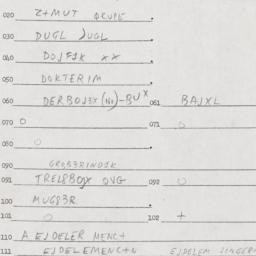 020 Z+MUT GRUPE
030 DUGL JUGL
040 DOJFJX XX
050 DOKTERIM
060 DERBOJ3X(N)-BUX 061 BAJXL
070 O 071 O
080 O
090 GROB3RINDJK
091 TREL8BOJX OVG 092 O
100 MUG83R
101 O 102 +
110 A EJDELER MENC+
111 EJDELEMENC+N EJDELEM